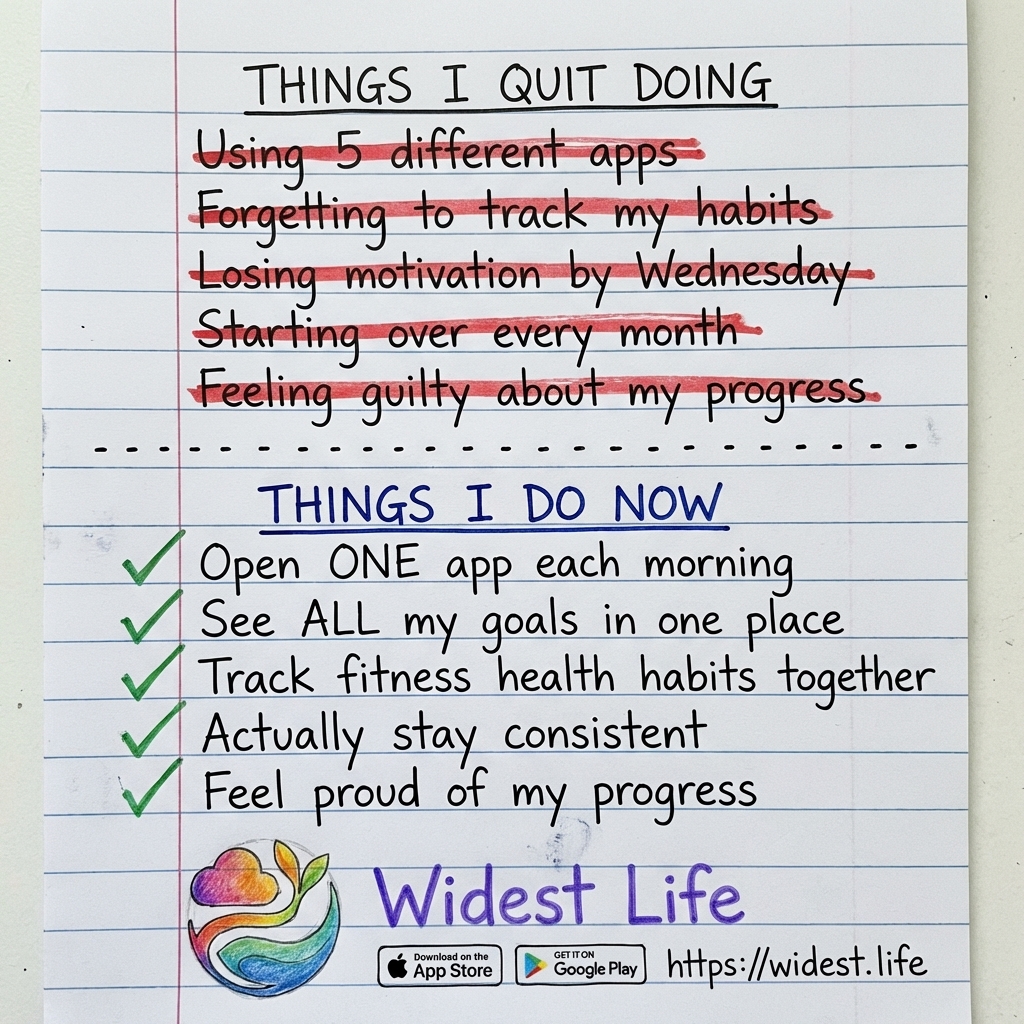 THINGS I QUIT DOING
Using 5 different apps
Forgetting to track my habits
Losing motivation by Wednesday
Starting over every month
Feeling guilty about my progress
THINGS I DO NOW
Open ONE app each morning
See ALL my goals in one place
Track fitness health habits together
Actually stay consistent
Feel proud of my progress
Widest Life
Download on the
App Store
GET IT ON
Google Play
https://widest.life